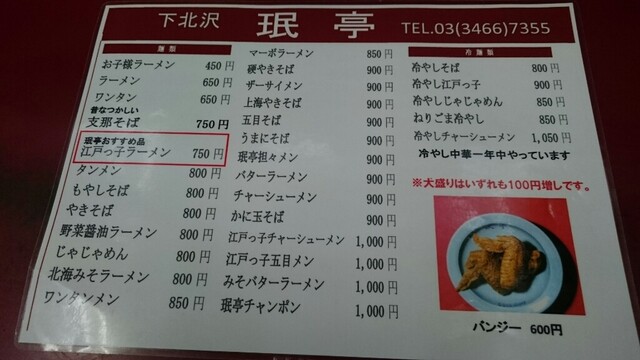 下北沢 珉亭 TEL.03(3466)7355
麺類
お子様ラーメン 450円
ラーメン 650円
ワンタン 650円
昔なつかしい
支那そば 750円
珉亭おすすめ品
江戸っ子ラーメン 750円
タンメン 800円
もやしそば 800円
やきそば 800円
野菜醤油ラーメン 800円
じゃじゃめん 800円
北海みそラーメン 800円
ワンタンメン 850円
マーボラーメン 850円
硬やきそば 900円
ザーサイメン 900円
上海やきそば 900円
五目そば 900円
うまにそば 900円
珉亭担々メン 900円
バターラーメン 900円
チャーシューメン 900円
かに玉そば 900円
江戸っ子チャーシューメン 1,000円
江戸っ子五目メン 1,000円
みそバターラーメン 1,000円
珉亭チャンポン 1,000円
冷麺類
冷やしそば 800円
冷やし江戸っ子 900円
冷やしじゃじゃめん 850円
ねりごま冷やし 850円
冷やしチャーシューメン 1,050円
冷やし中華一年中やっています
※大盛りはいずれも100円増しです。
パンジー 600円